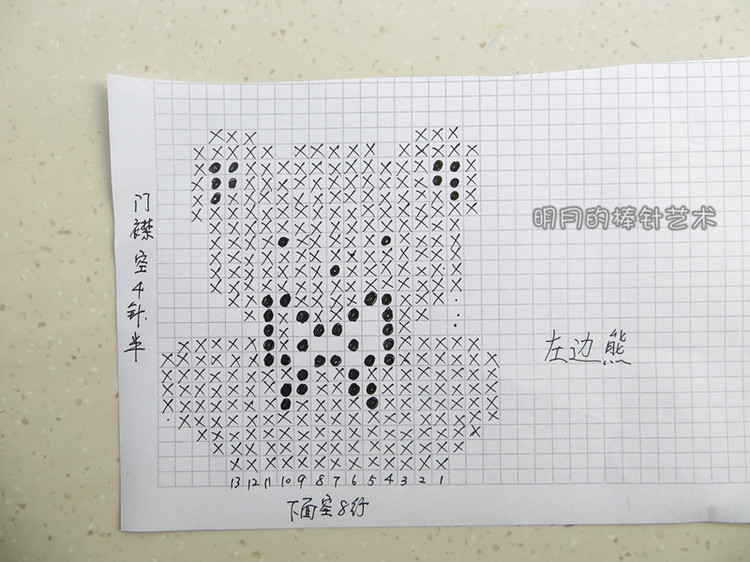 门襟空4针半
明月的棒针艺术
左边熊
13 12 11 10 9 8 7 6 5 4 3 2 1
下面空8行